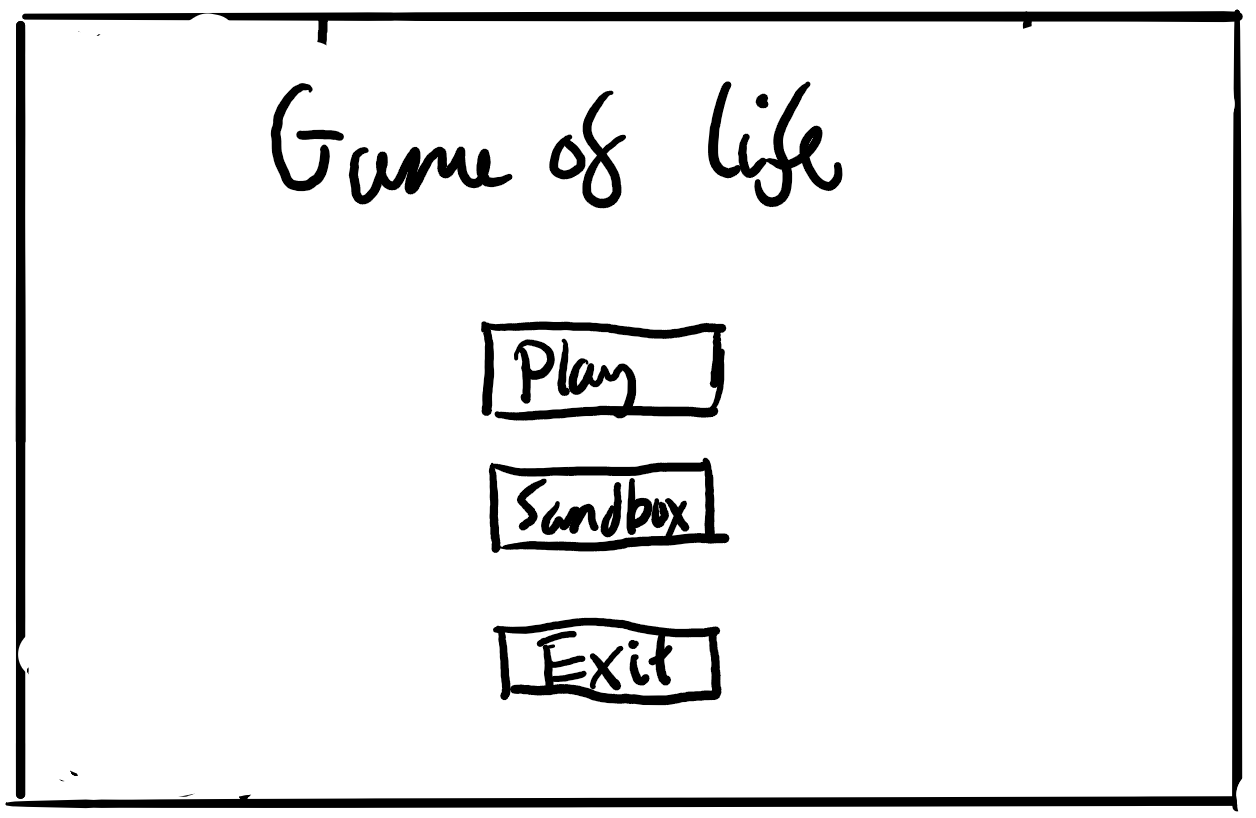 Game of life
Play
Sandbox
Exit